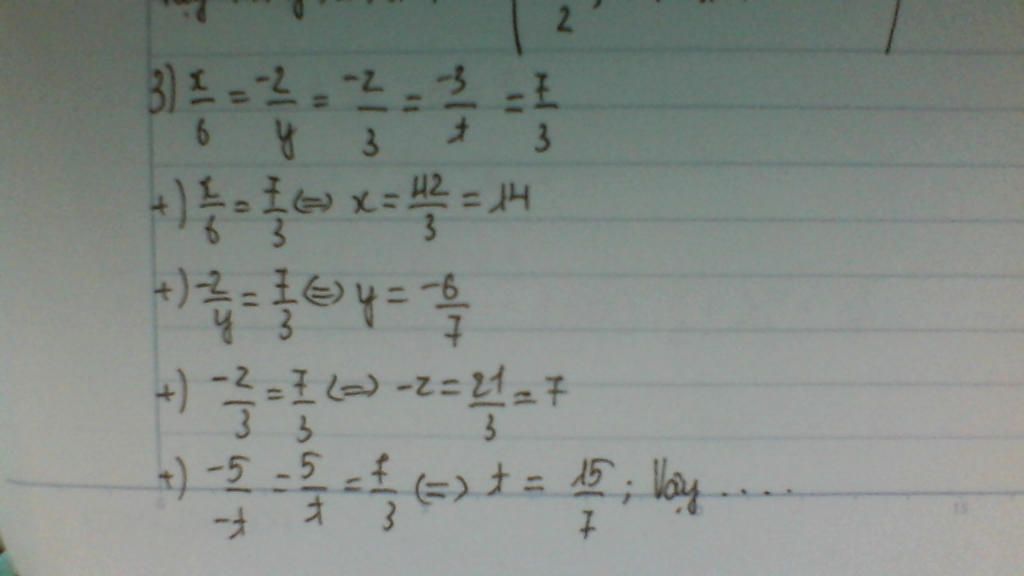 2
3) x/6 = -2/y = -z/3 = -3/t = 7/3
+) x/6 = 7/3 (=) x = 42/3 = 14
+) -2/y = 7/3 (=) y = -6/7
+) -z/3 = 7/3 (=) -z = 21/3 = 7
+) -5/-t = 5/t = 7/3 (=) t = 15/7 ; Vậy ....